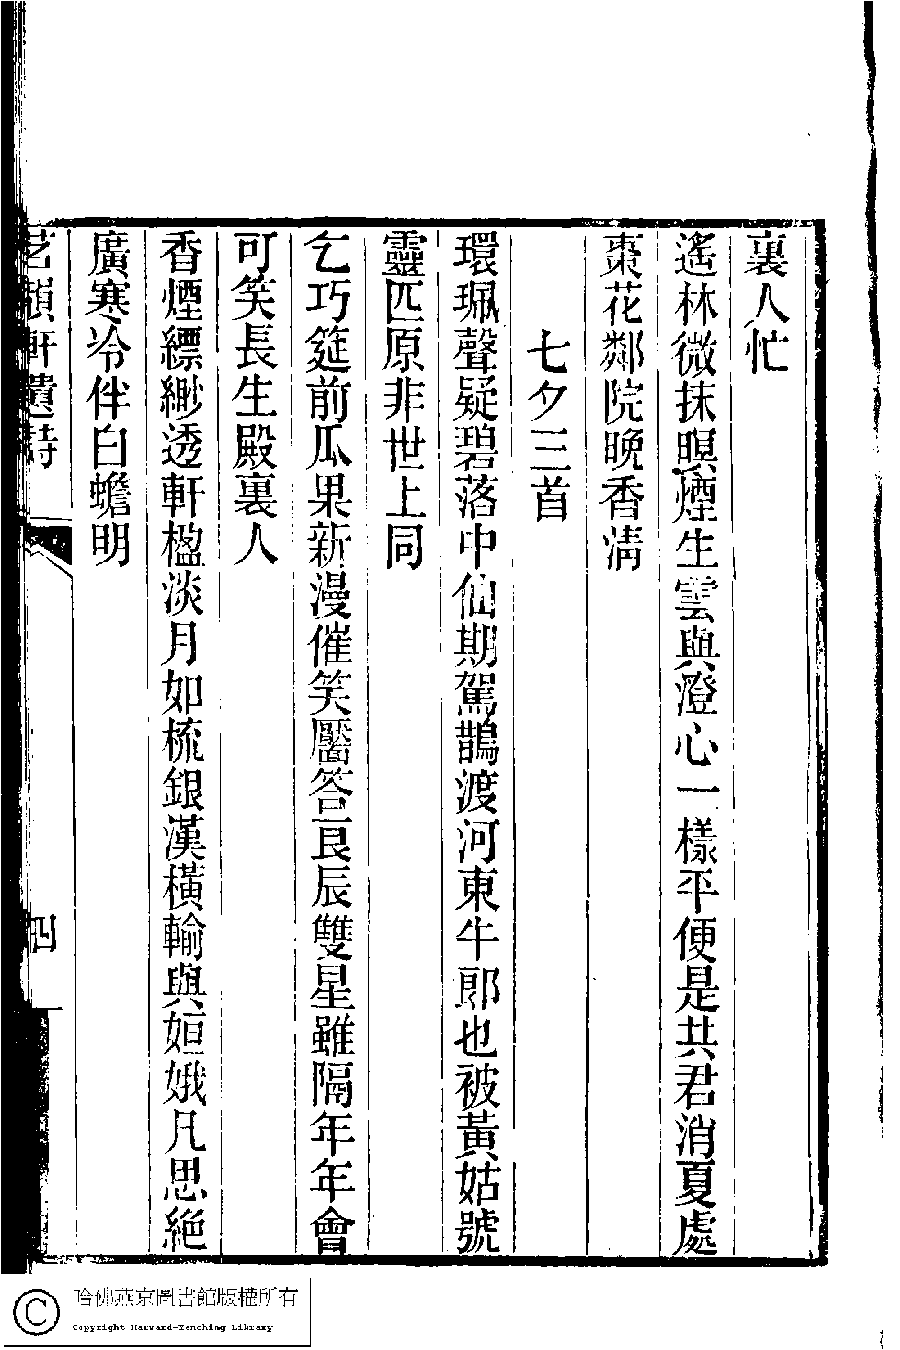 裏人忙
遙林微抹暝煙生雲與澄心一樣平便是共君消夏處
棗花鄰院晚香清
七夕三首
環珮聲疑碧落中仙期駕鵲渡河東牛郎也被黃姑號
靈匹原非世上同
乞巧筵前瓜果新漫催笑靨答良辰雙星雖隔年年會
可笑長生殿裏人
香煙縹緲透軒楹淡月如梳銀漢橫輸與姮娥凡思絕
廣寒冷伴白蟾明
軒遺詩
四
哈佛燕京圖書館版權所有
Copyright Harvard-Yenching Library